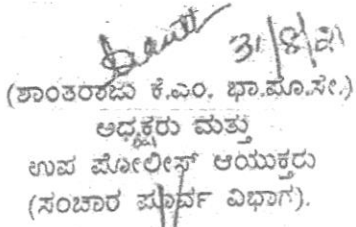 31/8/21
(ಶಾಂತರಾಜು ಕೆ.ಎಂ. ಭಾ.ಪೊ.ಸೇ.)
ಅಧ್ಯಕ್ಷರು ಮತ್ತು
ಉಪ ಪೋಲೀಸ್ ಆಯುಕ್ತರು
(ಸಂಚಾರ ಪೂರ್ವ ವಿಭಾಗ).